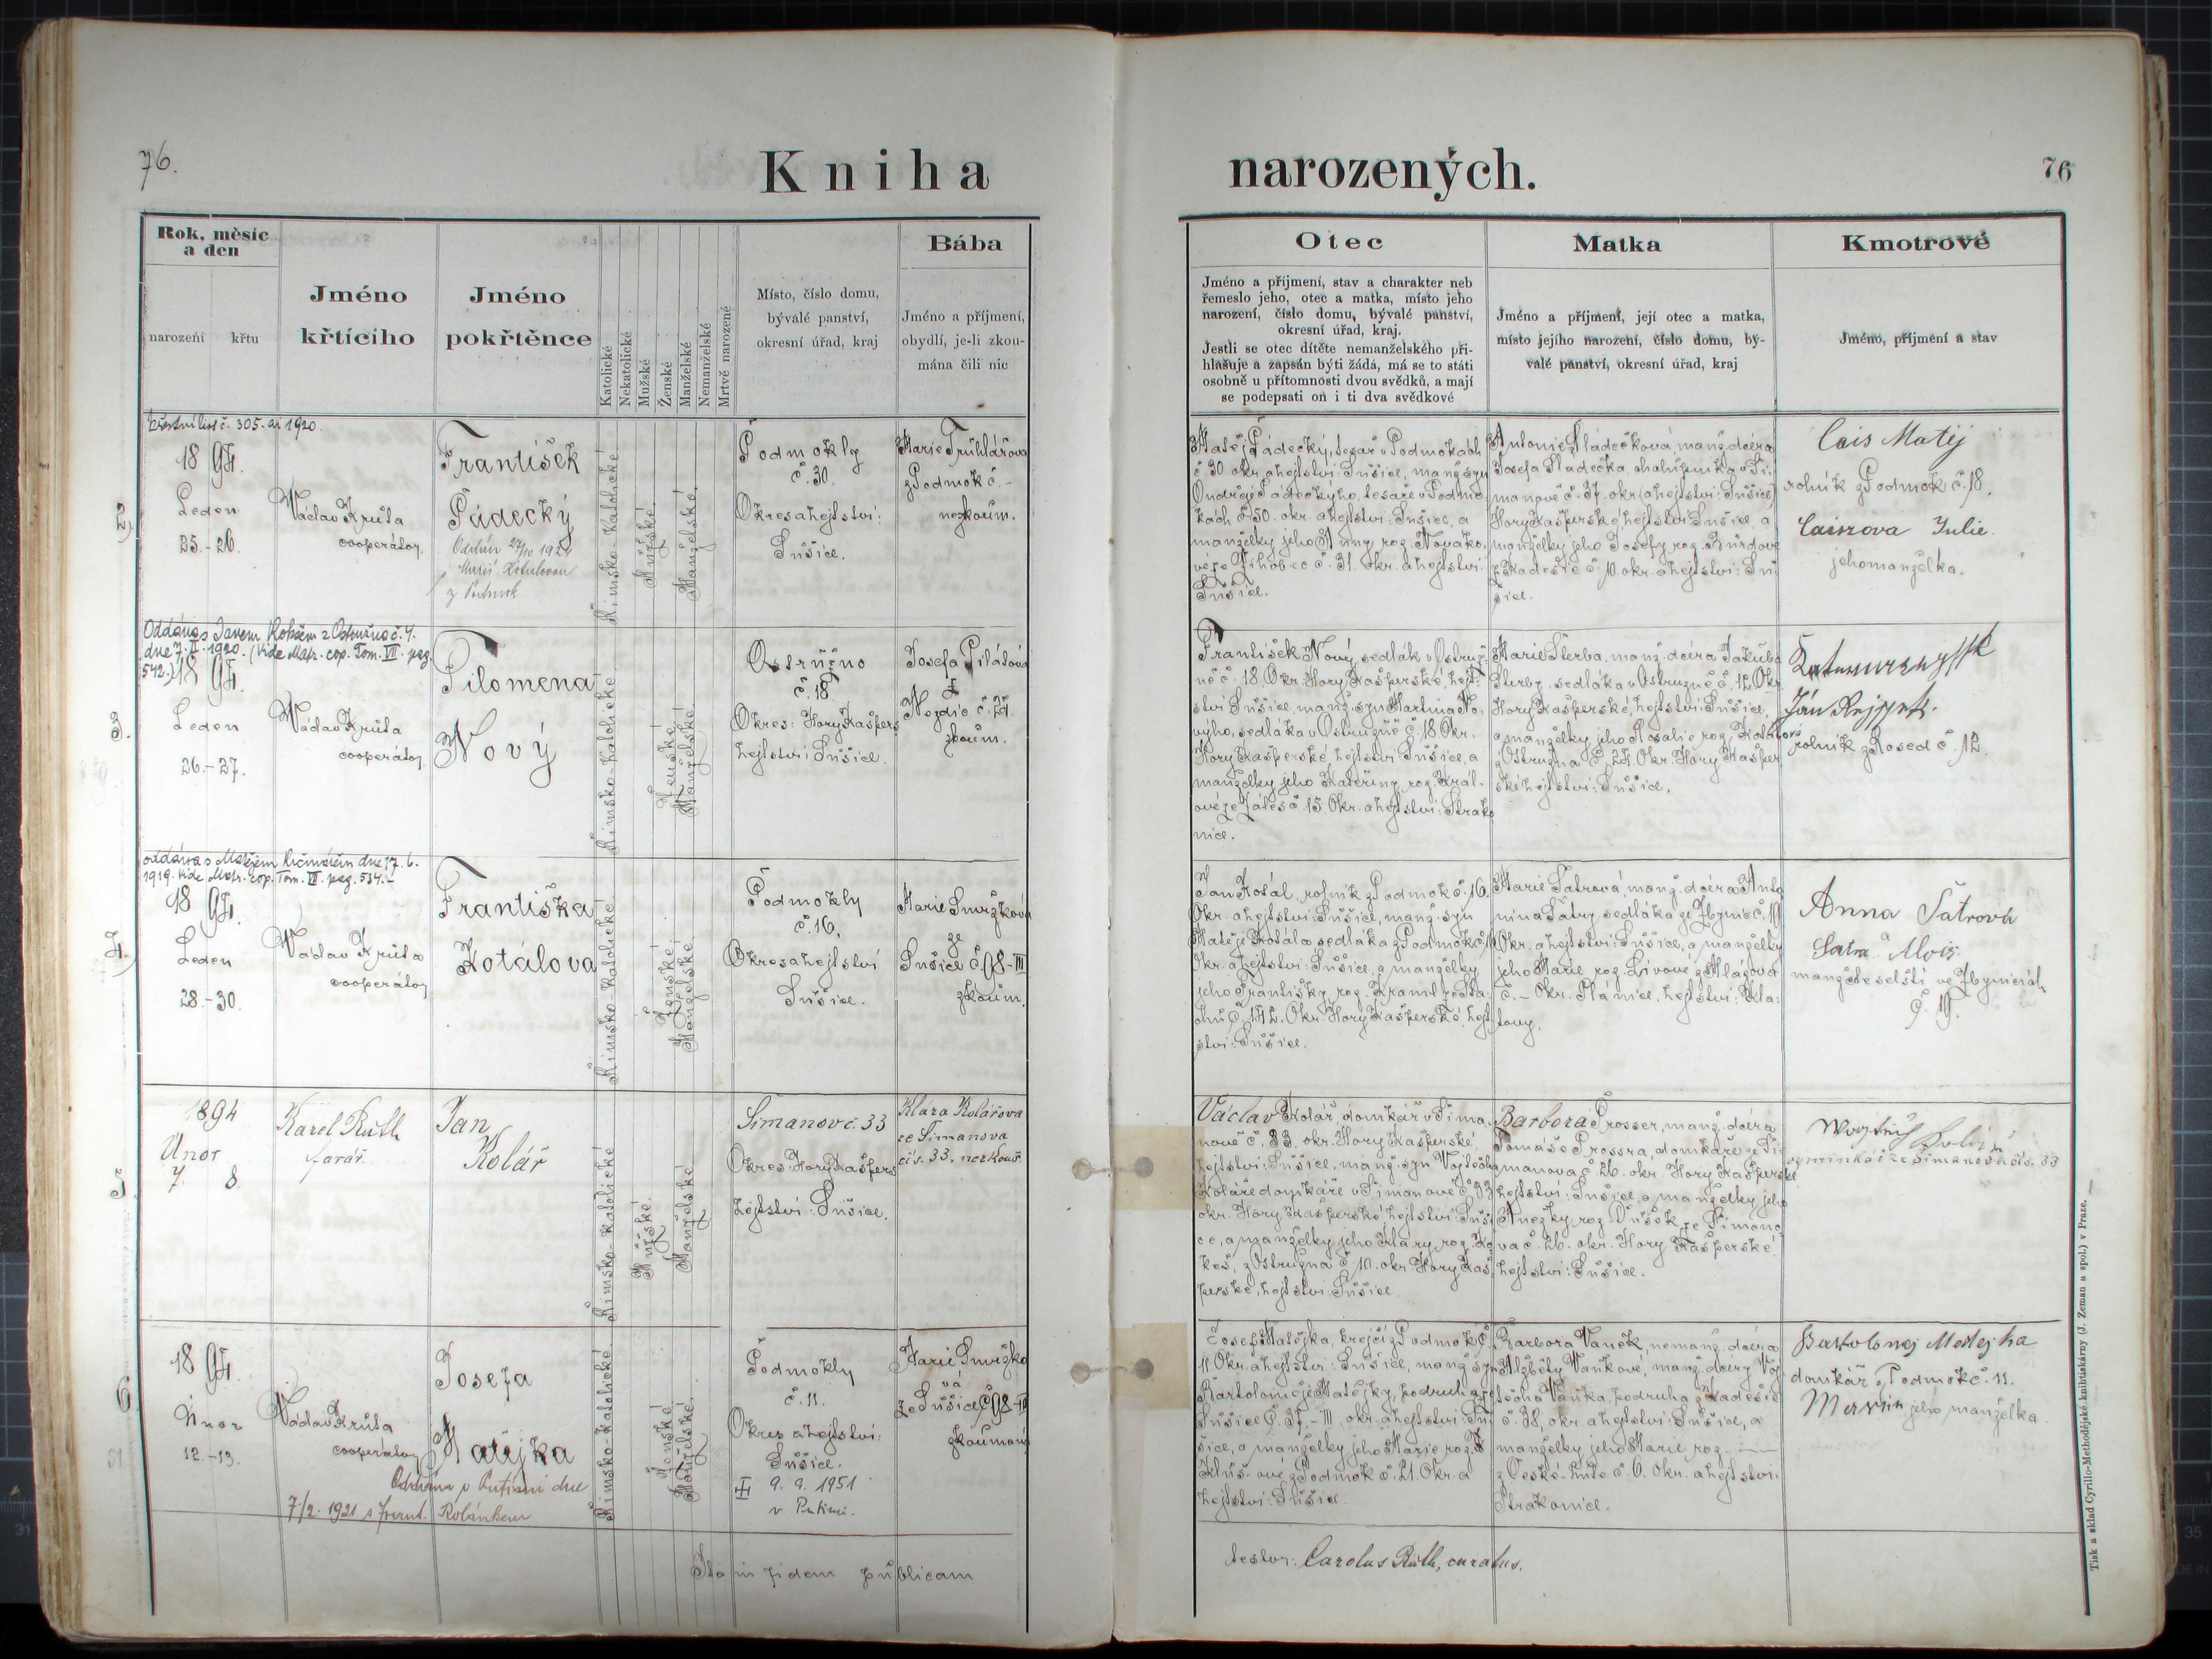 76.
Kniha
Rok, měsíc
a den
narození
křtu
Jméno
křtícího
Jméno
pokřtěnce
Katolické
Nekatolické
Mužské
Ženské
Manželské
Nemanželské
Mrtvě narozené
Místo, číslo domu,
bývalé panství,
okresní úřad, kraj
Bába
Jméno a příjmení,
obydlí, je-li zkou-
mána čili nic
č. 305. ai 1920.
2).
18 94.
Leden
25.-26.
Václav Krůta
cooperátor.
František
Pádecký
1921
z Podmok
Římsko-Katolické
Mužské.
Manželské.
Podmokly
č. 30.
Okres a hejtství:
Sušice.
Marie Truhlářova
z Podmok č. -
nezkoum.
Oddána s Janem z Ostružna č. 4.
dne 7. II. 1920. (Vide Matr. cop. Tom. VII. pag.
542.)
3.
18 94.
Leden
26.-27.
Václav Krůta
cooperátor
Filomena
Nový
Římsko-Katolické
Ženské
Manželské
Ostružno
č. 18
Okres: Hory Kašpers
hejtství Sušice.
Josefa Pilátová
z
Nezdic č. 24.
zkoum.
oddána s Matějem dne 17. 6.
1919. Vide Matr. cop. Tom. VII. pag. 534.-
4.)
18 94.
Leden
28.-30.
Václav Krůta
cooperátor
Františka
Kotálova
Římsko-Katolické
Ženské
Manželské.
Podmokly
č. 16.
Okres a hejtství
Sušice.
Marie Smržkova
ze
Sušice č. 98-III
zkoum.
5
1894
Únor
7. 8.
Karel Rüth
farář.
Jan
Kolář
Římsko-Katolické
Mužské.
Manželské.
Šimanov č. 33
Okres Hory Kašpers
hejtství: Sušice.
Klára Kolářova
ze Šimanova
čís. 33. nezkouš.
6
18 94.
Únor
12.-13.
Václav Krůta
cooperátor
Josefa
Matějka
Oddána v Putimi dne
7./2. 1921 s Frant. Rolínkem
Římsko-Katolické
Ženské
Manželské.
Podmokly
č. 11.
Okres a hejtství:
Sušice.
9. 9. 1951
v Putimi.
Marie Smržko
vá
ze Sušice č. 98-III
zkoumaná
Ita in fidem publicam
narozených.
76
Otec
Jméno a příjmení, stav a charakter neb
řemeslo jeho, otec a matka, místo jeho
narození, číslo domu, bývalé panství,
okresní úřad, kraj.
Jestli se otec dítěte nemanželského při-
hlašuje a zapsán býti žádá, má se to státi
osobně u přítomnosti dvou svědků, a mají
se podepsati on i ti dva svědkové
Matka
Jméno a příjmení, její otec a matka,
místo jejího narození, číslo domu, bý-
valé panství, okresní úřad, kraj
Kmotrové
Jméno, příjmení a stav
Matěj Pádecký, tesař v Podmokách
č. 30. okr. a hejtství: Sušice, manž. syn
Ondřeje Pádeckýho, tesaře v Podmo-
kách č. 50. okr. a hejtství Sušice, a
manželky jeho Anny roz. Novako-
vé ze Vihobec č. 31. okr. a hejtství:
Sušice.
Antonie Sladečková, manž. dcera
Josefa Sladečka, chalupníka v Ši-
manově č. 37. okr. (a hejtství: Sušice)
Hory Kašperské hejtství Sušice, a
manželky jeho Josefy roz.
z Kadešic č. 10. okr. a hejtství: Su-
šice.
Cais Matěj
rolník z Podmok č. 18.
Caiszova Julie
jeho manželka.
František Nový, sedlák v Ostruž-
ně č. 18 Okr. Hory Kašperské, hejt-
ství Sušice, manž. syn Martina No-
výho, sedláka v Ostružně č. 18 Okr.
Hory Kašperské hejtství: Sušice, a
manželky jeho Kateřiny roz. Král-
ové ze č. 15 Okr. a hejtství: Strako
nice.
Marie Šterba, manž. dcera Jakuba
Šterby, sedláka v Ostružně č. 12 Okr.
Hory Kašperské, hejtství: Sušice,
a manželky jeho Rosalie roz.
z Ostružna č. 24 Okr. Hory Kašper
ské hejtství: Sušice.
Ján
rolník z Rosed č. 12.
Jan Kotál, rolník z Podmok č. 16.
Okr. a hejtství: Sušice, manž. syn
Matěje Kotála sedláka z Podmok č. 16
Okr. a hejtství: Sušice, a manželky
jeho Františky roz.
č. 142. Okr. Hory Kašperské, hejt
ství: Sušice.
Marie Šatrová, manž. dcera Anto
nína Šatry, sedláka ze Zbynic č. 19
Okr. a hejtství: Sušice, a manželky
jeho Marie roz. Lívové z Mlázova
č. - Okr. Plánice, hejtství: Kla-
tovy.
Anna Šatrová
Satra Alois
manžele selští ve Zbynicích
č. 19.
Václav Kolář, domkář v Šima-
nově č. 33. okr. Hory Kašperské
hejtství: Sušice, manž. syn Vojtěcha
Koláře domkáře v Šimanově č. 33
okr. Hory Kašperské, hejtství: Suši
ce, a manželky jeho Kláry roz. Ko
keš, z Ostružna č. 10. okr. Hory Kaš
perské, hejtství: Sušice
Barbora Prosser, manž. dcera
Tomáše Prossra, domkáře ze Ši-
manova č. 26. okr. Hory Kašperské
hejtství: Sušice, a manželky jeho
Anežky roz. Dušek, ze Šimano
va č. 26. okr. Hory Kašperské,
hejtství: Sušice.
výminkář ze Šimanova čís. 33
Josef Matějka, krejčí z Podmok č.
11 Okr. a hejtství: Sušice, manž. syn
Bartoloměje Matějky, podruha ze
Sušice č. 37.-III. okr. a hejtství: Su
šice, a manželky jeho Marie roz.
z Podmok č. 21. Okr. a
hejtství: Sušice.
Barbora Vaněk, nemanž. dcera
Alžběty Vaňkové, manž. dcery Voj
těcha Vaňka, podruha z Kadešic
č. 38, okr. a hejtství: Sušice, a
manželky jeho Marie roz. ——
z České-hutě č. 6. okr. a hejtství:
Strakonice.
Bartolomej Matejka
domkář z Podmok č. 11.
jeho manželka.
testor: Carolus Rüth, curatus.
Tisk a sklad Cyrillo-Methodějské knihtiskárny (J. Zeman a spol.) v Praze.